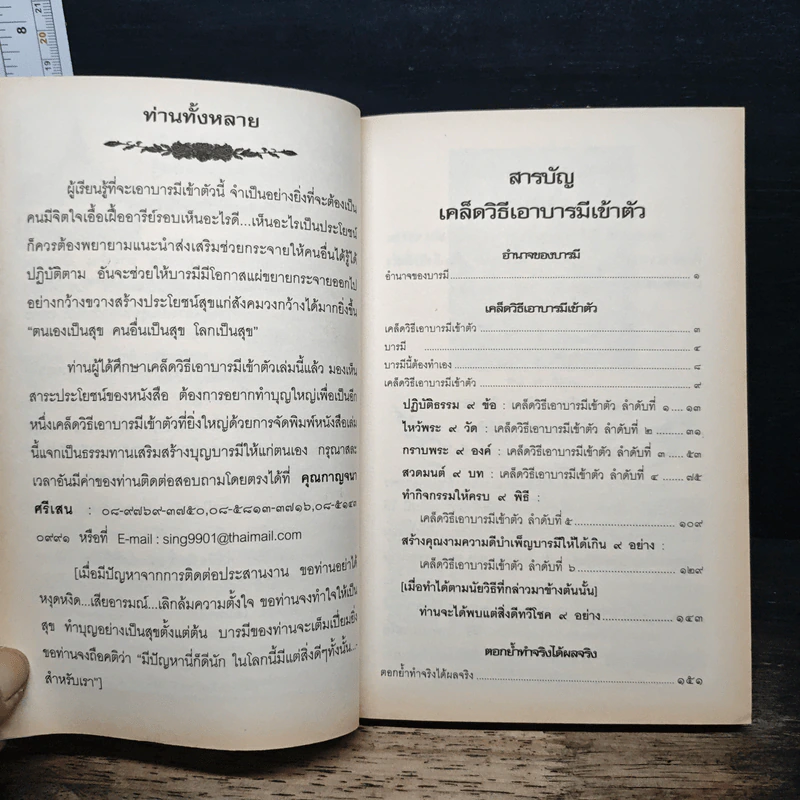 8
20
21
ท่านทั้งหลาย
ผู้เรียนรู้ที่จะเอาบารมีเข้าตัวนี้ จำเป็นอย่างยิ่งที่จะต้องเป็น
คนมีจิตใจเอื้อเฟื้ออารีย์รอบเห็นอะไรดี...เห็นอะไรเป็นประโยชน์
ก็ควรต้องพยายามแนะนำส่งเสริมช่วยกระจายให้คนอื่นได้รู้ได้
ปฏิบัติตาม อันจะช่วยให้บารมีมีโอกาสแผ่ขยายกระจายออกไป
อย่างกว้างขวางสร้างประโยชน์สุขแก่สังคมวงกว้างได้มากยิ่งขึ้น
“ตนเองเป็นสุข คนอื่นเป็นสุข โลกเป็นสุข”
ท่านผู้ได้ศึกษาเคล็ดวิธีเอาบารมีเข้าตัวเล่มนี้แล้ว มองเห็น
สาระประโยชน์ของหนังสือ ต้องการอยากทำบุญใหญ่เพื่อเป็นอีก
หนึ่งเคล็ดวิธีเอาบารมีเข้าตัวที่ยิ่งใหญ่ด้วยการจัดพิมพ์หนังสือเล่ม
นี้แจกเป็นธรรมทานเสริมสร้างบุญบารมีให้แก่ตนเอง กรุณาสละ
เวลาอันมีค่าของท่านติดต่อสอบถามโดยตรงได้ที่ คุณกาญจนา
ศรีเสน : ๐๘-๙๗๖๙-๓๗๕๐,๐๘-๕๘๑๓-๓๗๑๖,๐๘-๕๑๔๓
๐๙๙๑ หรือที่ E-mail : sing9901@thaimail.com
[เมื่อมีปัญหาจากการติดต่อประสานงาน ขอท่านอย่าได้
หงุดหงิด...เสียอารมณ์...เลิกล้มความตั้งใจ ขอท่านจงทำใจให้เป็น
สุข ทำบุญอย่างเป็นสุขตั้งแต่ต้น บารมีของท่านจะเต็มเปี่ยมยิ่ง
ขอท่านจงถือคติว่า “มีปัญหานี่ก็ดีนัก ในโลกนี้มีแต่สิ่งดีๆทั้งนั้น...
สำหรับเรา”]
สารบัญ
เคล็ดวิธีเอาบารมีเข้าตัว
อำนาจของบารมี
อำนาจของบารมี ๑
เคล็ดวิธีเอาบารมีเข้าตัว
เคล็ดวิธีเอาบารมีเข้าตัว ๓
บารมี ๔
บารมีนี้ต้องทำเอง ๘
เคล็ดวิธีเอาบารมีเข้าตัว ๙
ปฏิบัติธรรม ๙ ข้อ : เคล็ดวิธีเอาบารมีเข้าตัว ลำดับที่ ๑ .... ๑๓
ไหว้พระ ๙ วัด : เคล็ดวิธีเอาบารมีเข้าตัว ลำดับที่ ๒ ... ๓๑
กราบพระ ๙ องค์ : เคล็ดวิธีเอาบารมีเข้าตัว ลำดับที่ ๓ .. ๕๓
สวดมนต์ ๙ บท : เคล็ดวิธีเอาบารมีเข้าตัว ลำดับที่ ๔ ... ๗๕
ทำกิจกรรมให้ครบ ๙ พิธี :
เคล็ดวิธีเอาบารมีเข้าตัว ลำดับที่ ๕ ๑๐๙
สร้างคุณงามความดีบำเพ็ญบารมีให้ได้เกิน ๙ อย่าง :
เคล็ดวิธีเอาบารมีเข้าตัว ลำดับที่ ๖ ๑๒๙
[เมื่อทำได้ตามนัยวิธีที่กล่าวมาข้างต้นนั้น]
ท่านจะได้พบแต่สิ่งดีทวีโชค ๙ อย่าง ๑๔๓
ตอกย้ำทำจริงได้ผลจริง
ตอกย้ำทำจริงได้ผลจริง ๑๕๑